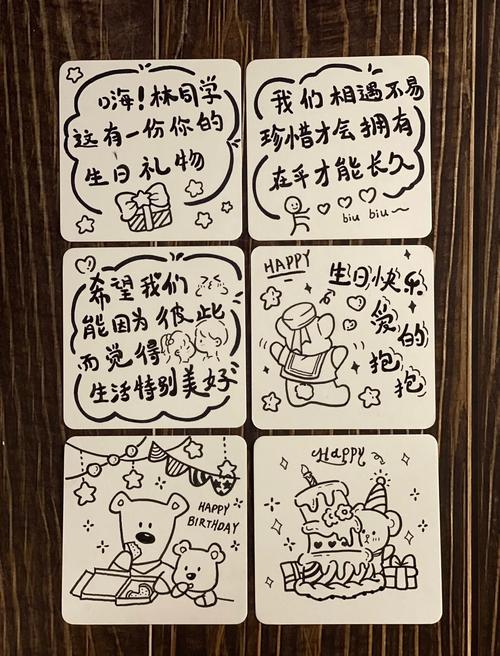 嗨！林同学
这有一份你的
生日礼物
我们相遇不易
珍惜才会拥有
在乎才能长久
biu biu~
希望我们
能因为彼此
而觉得
生活特别美好
HAPPY
生日快乐
爱
的
抱
抱
HAPPY
BIRTHDAY
Happy